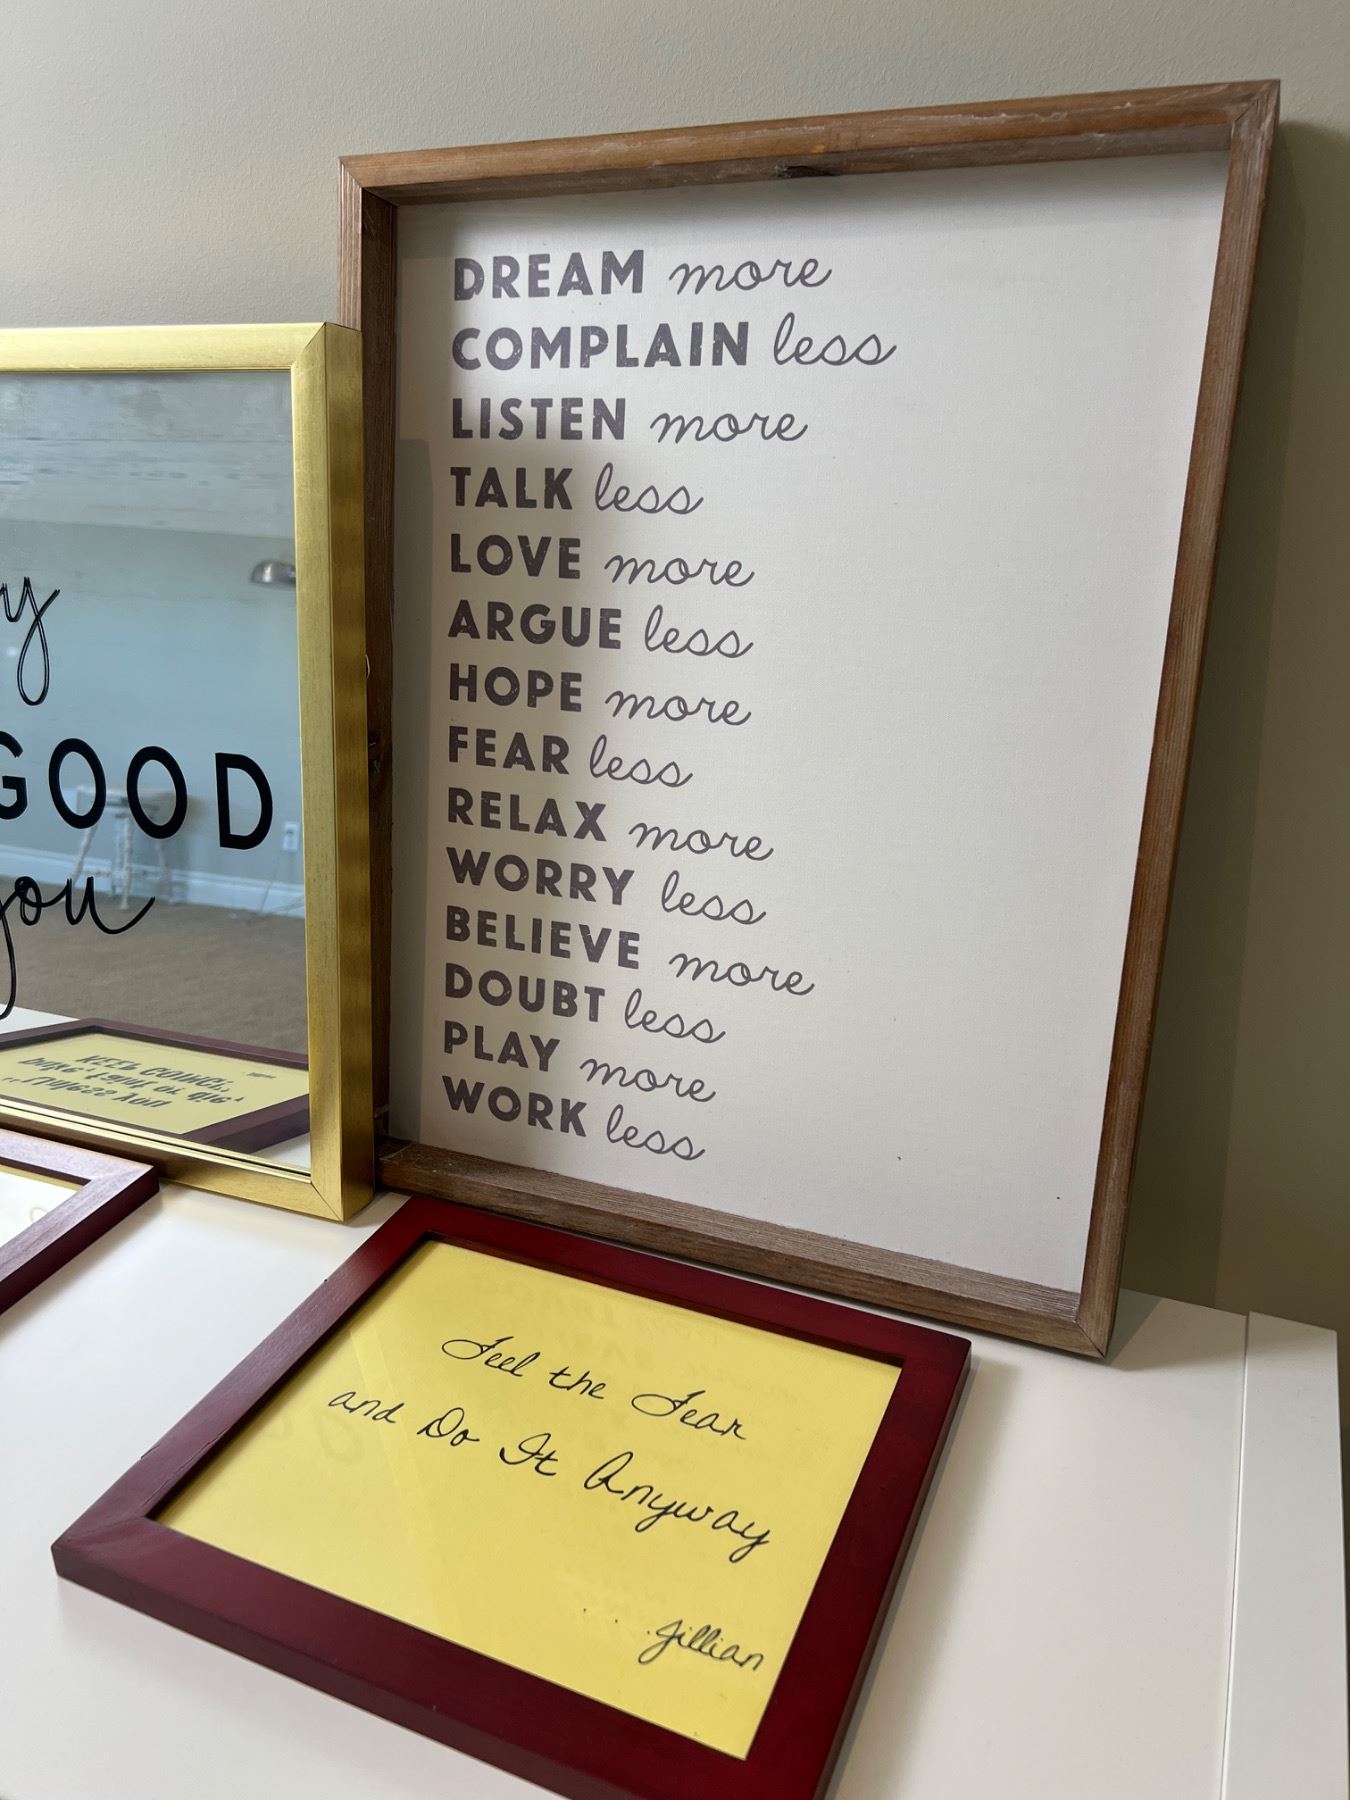 DREAM more
COMPLAIN less
LISTEN more
TALK less
LOVE more
ARGUE less
HOPE more
FEAR less
RELAX more
WORRY less
BELIEVE more
DOUBT less
PLAY more
WORK less
y
GOOD
you
Feel the Fear
and Do It Anyway
... Jillian